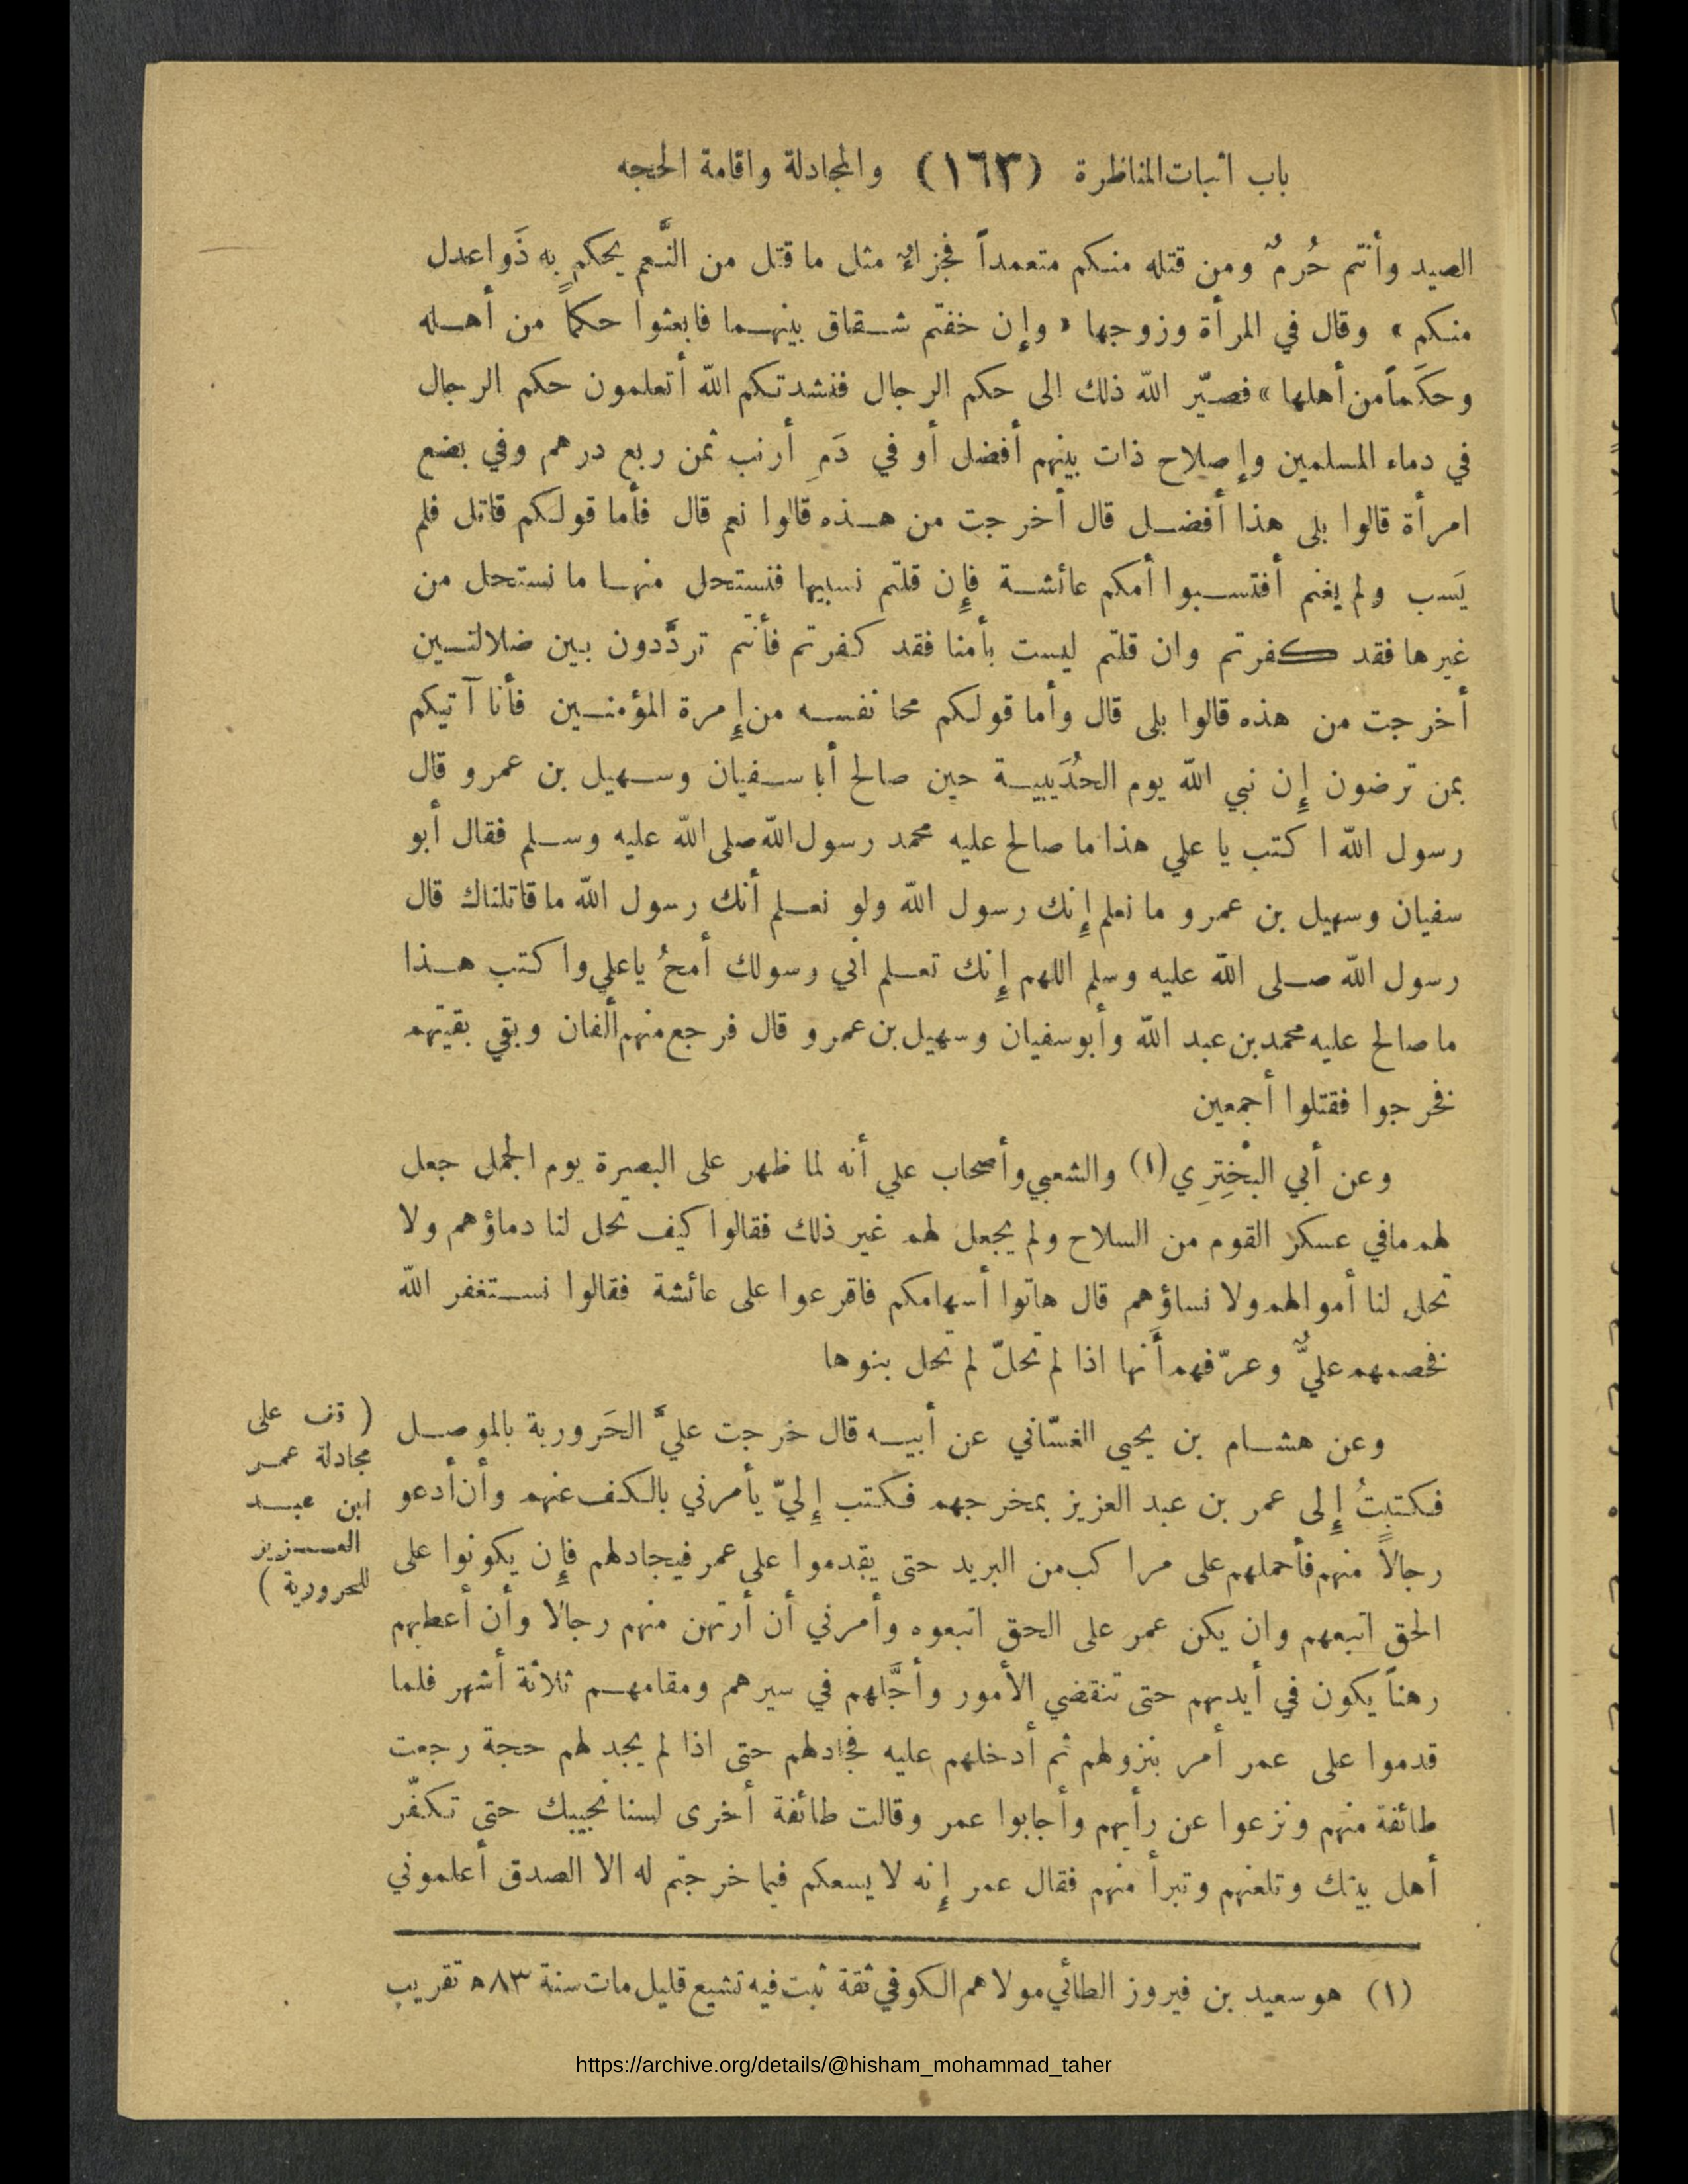 باب اثبات المناظرة (١٦٣) والمجادلة واقامة الحجه
الصيد وأنتم حُرمٌ ومن قتله منكم متعمداً فجزاءٌ مثل ما قتل من النَّعم يحكم به ذَوا عدل
منكم » وقال في المرأة وزوجها « وإن خفتم شقاق بينهما فابعثوا حكماً من أهله
وحكَماً من أهلها » فصيّر الله ذلك الى حكم الرجال فنشدتكم الله أتعلمون حكم الرجال
في دماء المسلمين وإصلاح ذات بينهم أفضل أو في دَمِ أرنب ثمن ربع درهم وفي بضع
امرأة قالوا بلى هذا أفضل قال أخرجت من هذه قالوا نعم قال فأما قولكم قاتل فلم
يَسب ولم يغنم أفتسبوا أمكم عائشة فإِن قلتم نسبيها فنستحل منها ما نستحل من
غيرها فقد كفرتم وان قلتم ليست بأمنا فقد كفرتم فأنتم تردَّدون بين ضلالتين
أخرجت من هذه قالوا بلى قال وأما قولكم محا نفسه من إِمرة المؤمنين فأنا آتيكم
بمن ترضون إِن نبي الله يوم الحُدَيبية حين صالح أبا سفيان وسهيل بن عمرو قال
رسول الله اكتب يا علي هذا ما صالح عليه محمد رسول الله صلى الله عليه وسلم فقال أبو
سفيان وسهيل بن عمرو ما نعلم إِنك رسول الله ولو نعلم أنك رسول الله ما قاتلناك قال
رسول الله صلى الله عليه وسلم اللهم إِنك تعلم اني رسولك أمحُ يا علي واكتب هذا
ما صالح عليه محمد بن عبد الله وأبو سفيان وسهيل بن عمرو قال فرجع منهم ألفان وبقي بقيتهم
فخرجوا فقتلوا أجمعين
وعن أبي البخْتِرِي (١) والشعبي وأصحاب علي أنه لما ظهر على البصرة يوم الجمل جعل
لهم ما في عسكر القوم من السلاح ولم يجعل لهم غير ذلك فقالوا كيف تحل لنا دماؤهم ولا
تحل لنا أموالهم ولا نساؤهم قال هاتوا أسهامكم فاقرعوا على عائشة فقالوا نستغفر الله
فخصمهم عليٌّ وعرّفهم أَنها اذا لم تحلّ لم تحل بنوها
وعن هشام بن يحيى الغسّاني عن أبيه قال خرجت عليَّ الحَرورية بالموصل
فكتبتُ إِلى عمر بن عبد العزيز بمخرجهم فكتب إِليّ يأمرني بالكف عنهم وأن أدعو
رجالاً منهم فأحملهم على مراكب من البريد حتى يقدموا على عمر فيجادلهم فإِن يكونوا على
الحق اتبعهم وان يكن عمر على الحق اتبعوه وأمرني أن أرتهن منهم رجالا وأن أعطيهم
رهناً يكون في أيديهم حتى تنقضي الأمور وأجَّلهم في سيرهم ومقامهم ثلاثة أشهر فلما
قدموا على عمر أمر بنزولهم ثم أدخلهم عليه فجادلهم حتى اذا لم يجد لهم حجة رجعت
طائفة منهم ونزعوا عن رأيهم وأجابوا عمر وقالت طائفة أخرى لسنا نجيبك حتى تكفّر
أهل بيتك وتلعنهم وتبرأ منهم فقال عمر إِنه لا يسعكم فيما خرجتم له الا الصدق أعلموني
( قف على
مجادلة عمر
ابن عبد
العزيز
للحرورية )
(١) هو سعيد بن فيروز الطائي مولاهم الكوفي ثقة ثبت فيه تشيع قليل مات سنة ٨٣ه تقريب
https://archive.org/details/@hisham_mohammad_taher